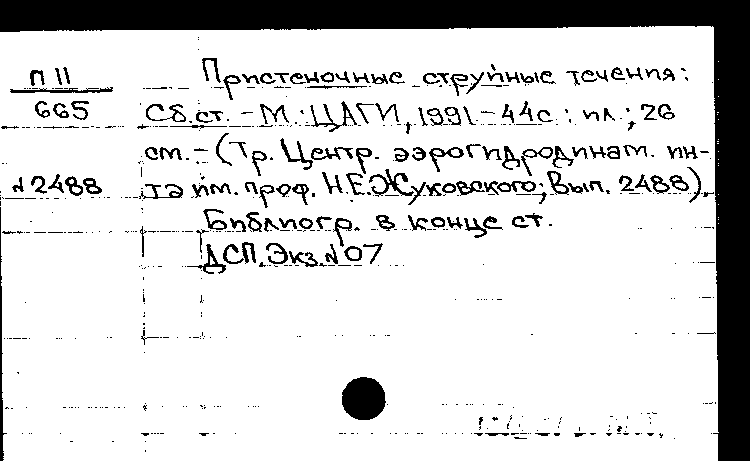 П 11
665
№2488
Пристеночные струйные течения:
Сб.ст. - М.: ЦАГИ, 1991 - 44с.: ил.; 26
см. - (Тр. Центр. аэрогидродинам. ин-
та им. проф. Н.Е.Жуковского; Вып. 2488).
Библиогр. в конце ст.
ДСП. Экз.№07